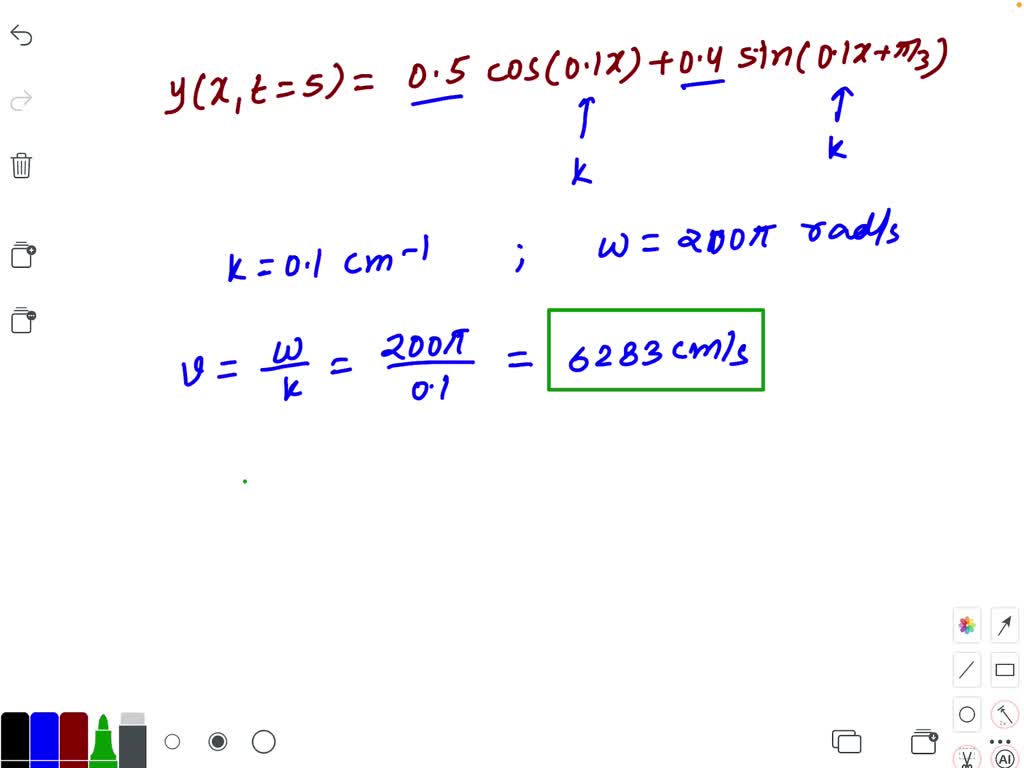 y(x, t = 5) = 0.5 cos(0.1x) + 0.4 sin(0.1x + π/3)
↑ ↑
k k
k = 0.1 cm⁻¹ ; ω = 200π rad/s
v = ω/k = 200π/0.1 = 6283 cm/s
AI